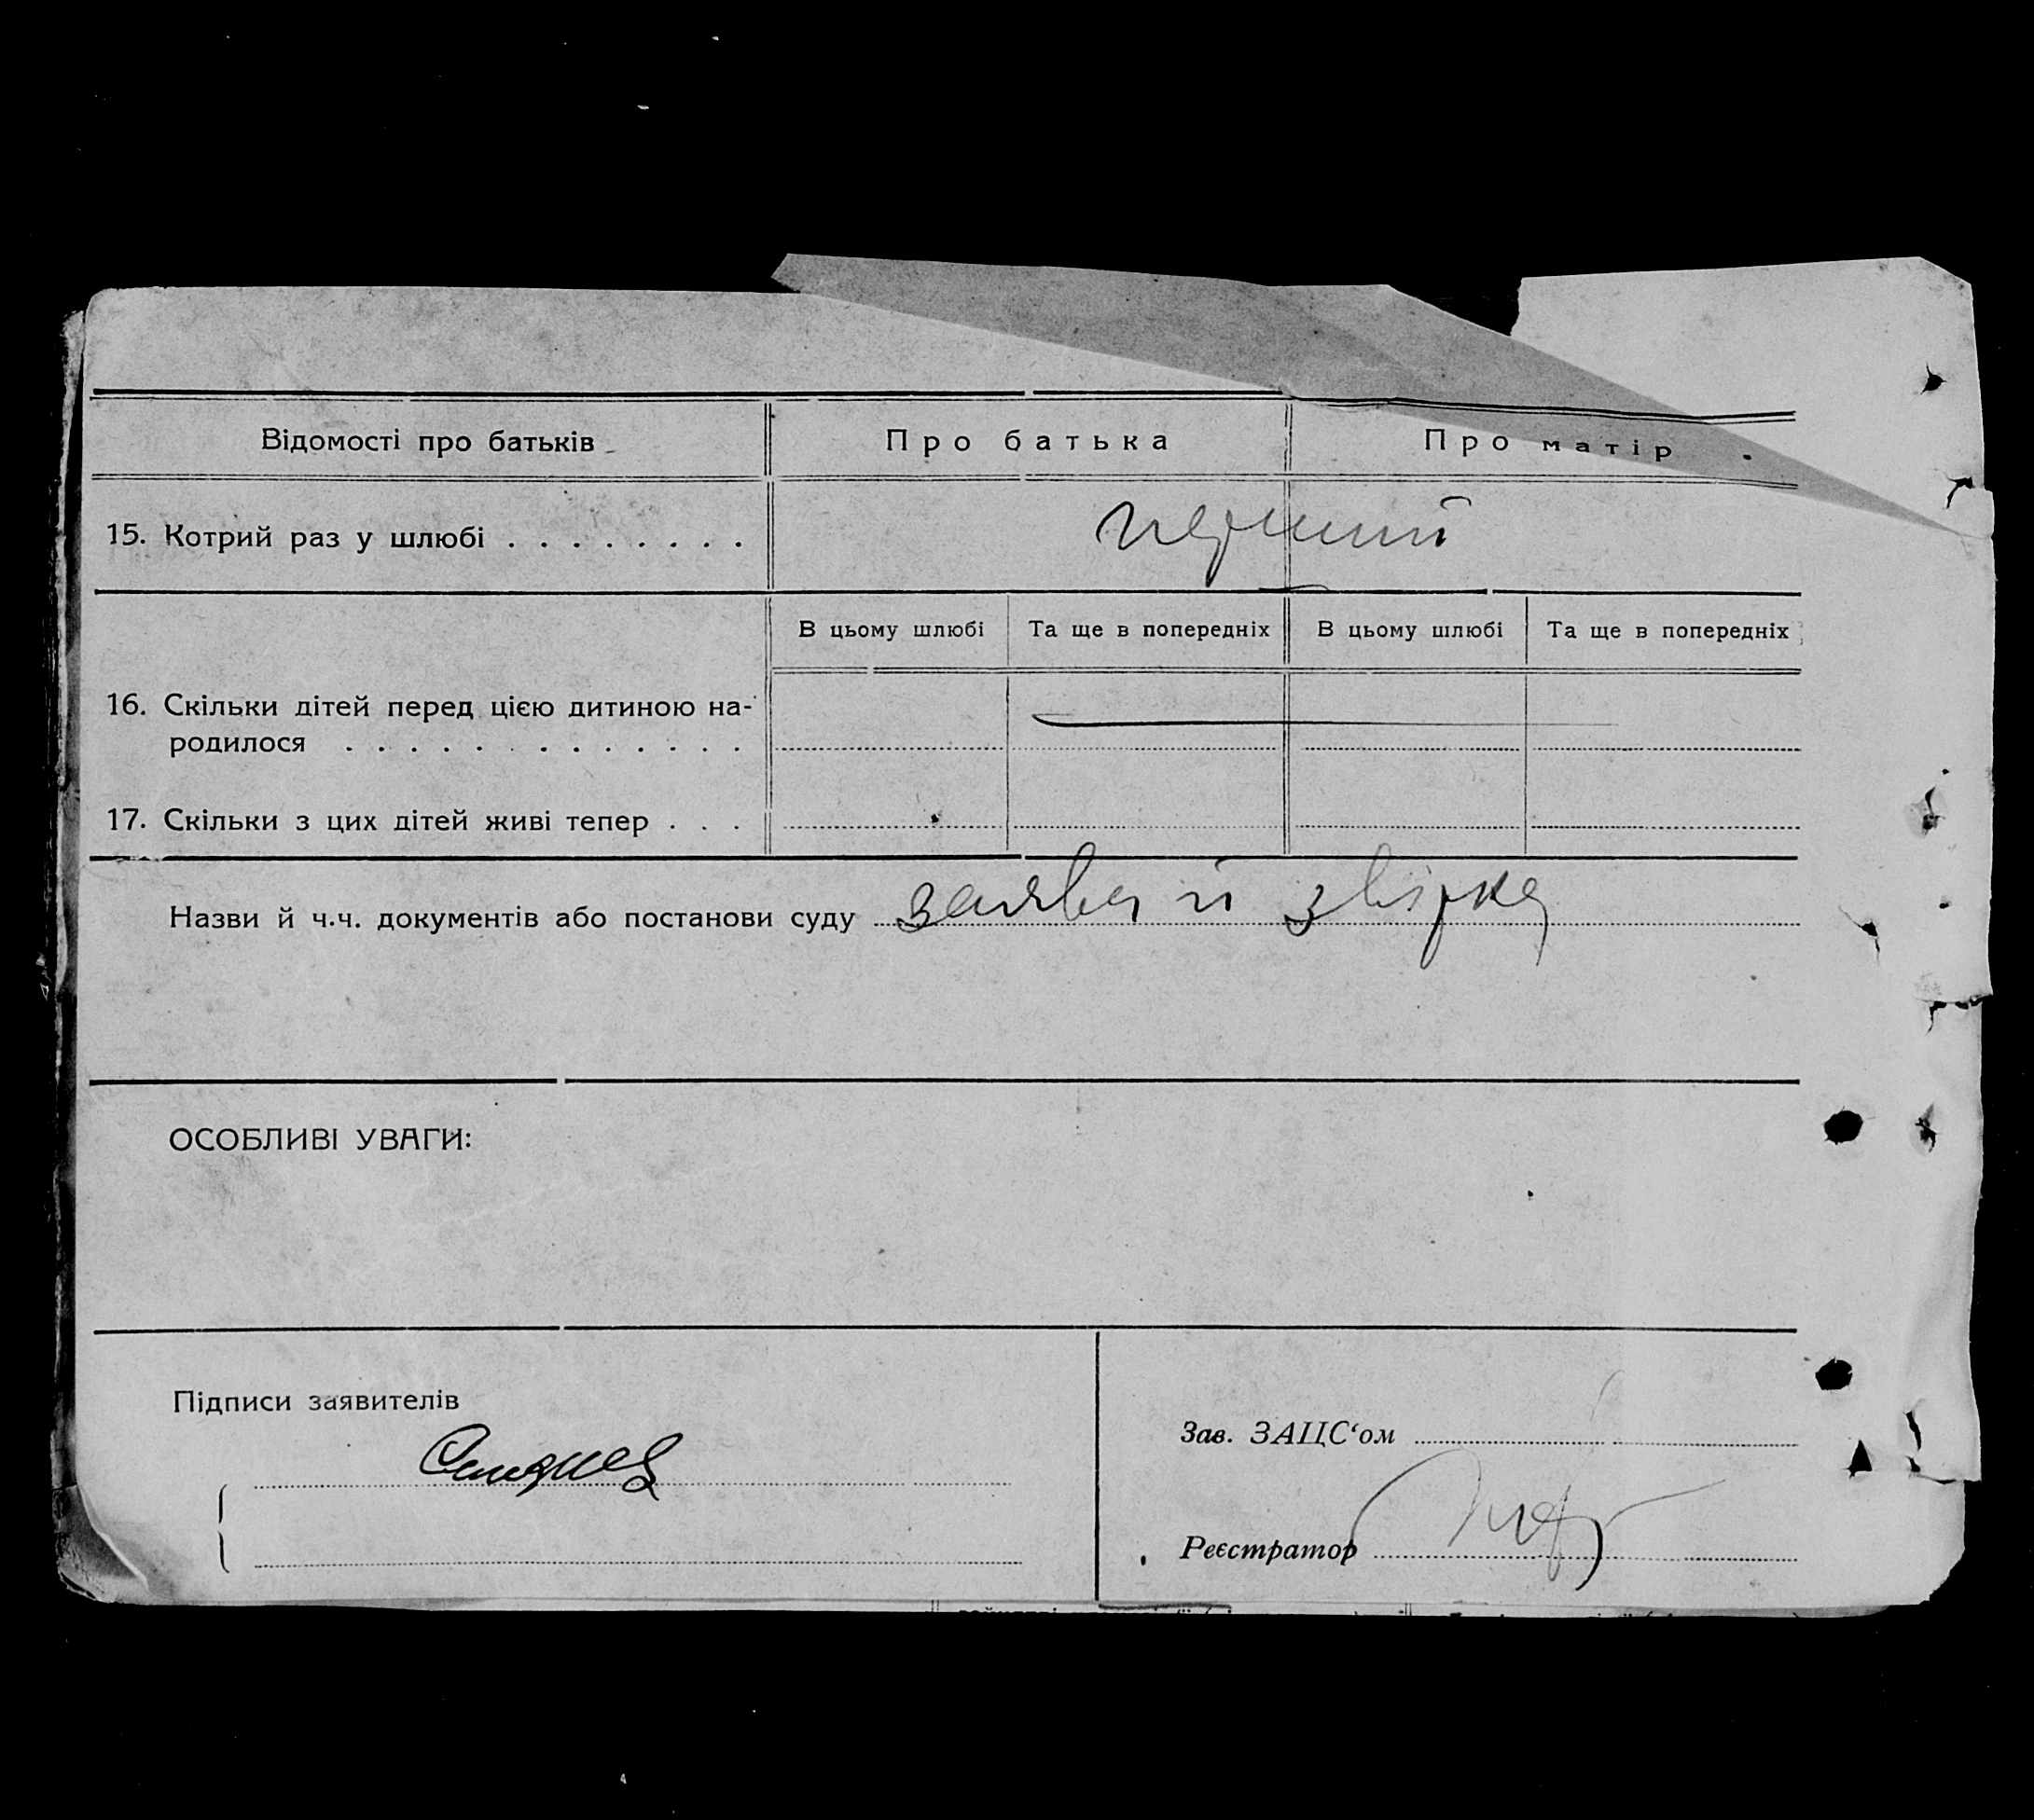 Відомості про батьків
Про батька
Про матір
15. Котрий раз у шлюбі . . . . . . . .
перший
В цьому шлюбі
Та ще в попередніх
В цьому шлюбі
Та ще в попередніх
16. Скільки дітей перед цією дитиною на-
родилося . . . . . . . . . . . . .
17. Скільки з цих дітей живі тепер . . .
Назви й ч.ч. документів або постанови суду заява й звірка
ОСОБЛИВІ УВАГИ:
Підписи заявителів
Зав. ЗАЦС‘ом
Реєстратор